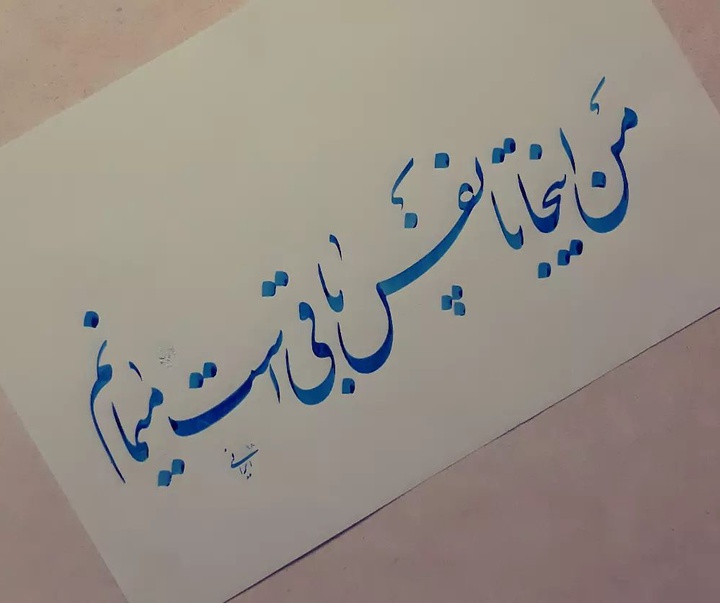 من اینجا تا نفس باقی است میمانم